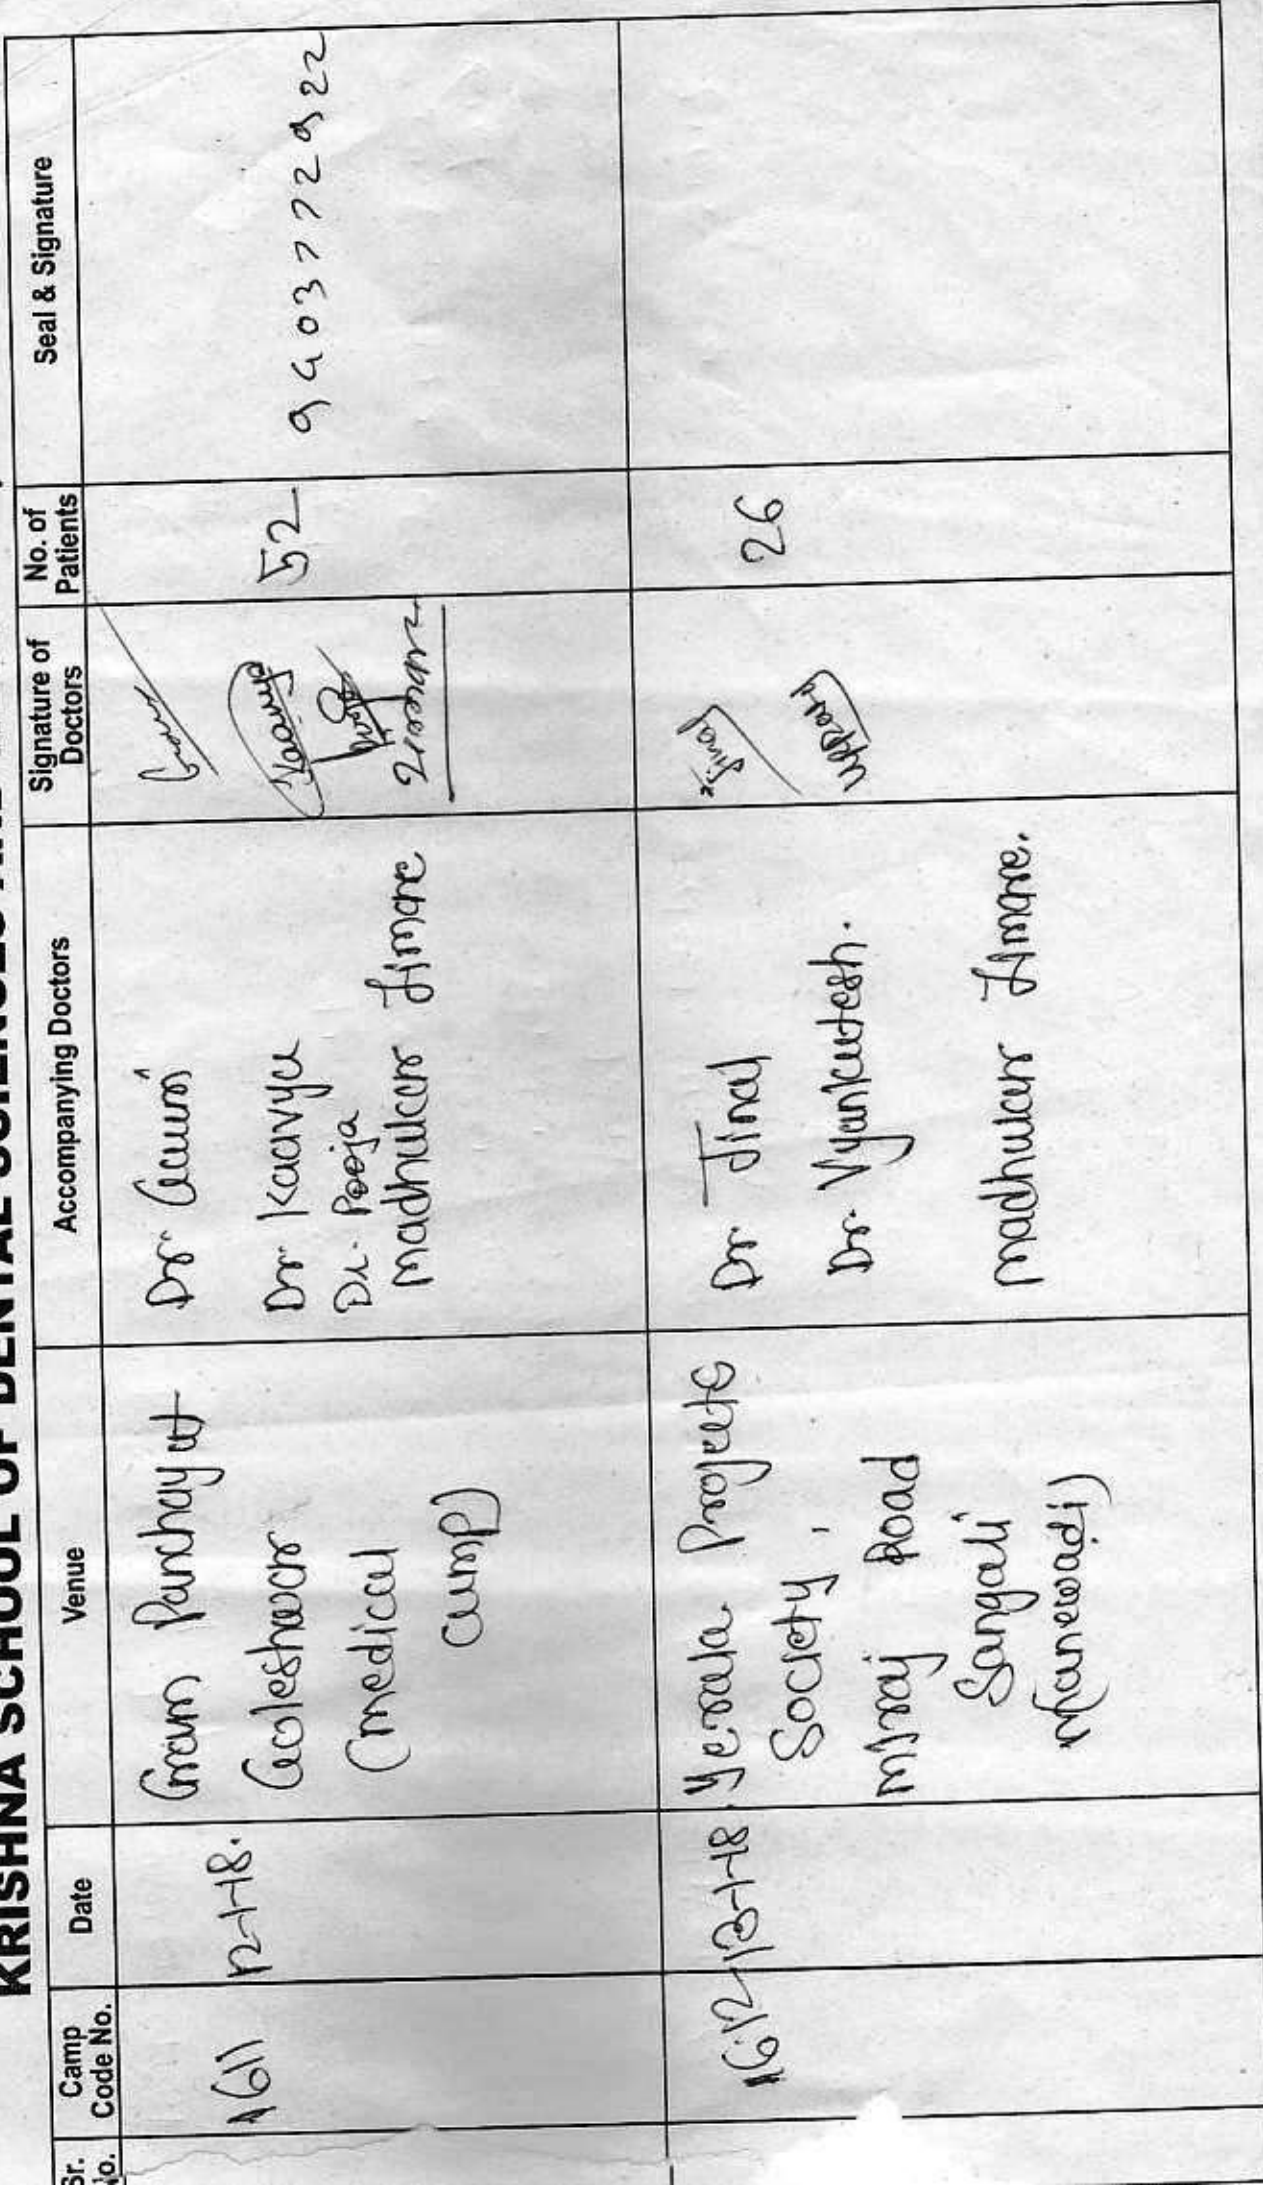 KRISHNA SCHOOL OF DENTAL SCIENCES
Sr. No.
Camp
Code No.
Date
Venue
Accompanying Doctors
Signature of
Doctors
No. of
Patients
Seal & Signature
1611
12-1-18.
Gram Panchayat
Goleshwar
(medical
camp)
Dr Gauri
Dr Kaavya
Dr. Pooja
Madhukar Jimare
Kaavya
Pooja
52
9403772922
1612
13-1-18
Yerala Projects
Society,
Miraj Road
Sangali
Dr. Jinal
Dr. Vyankatesh.
Madhukar Jimare.
Jinal
26